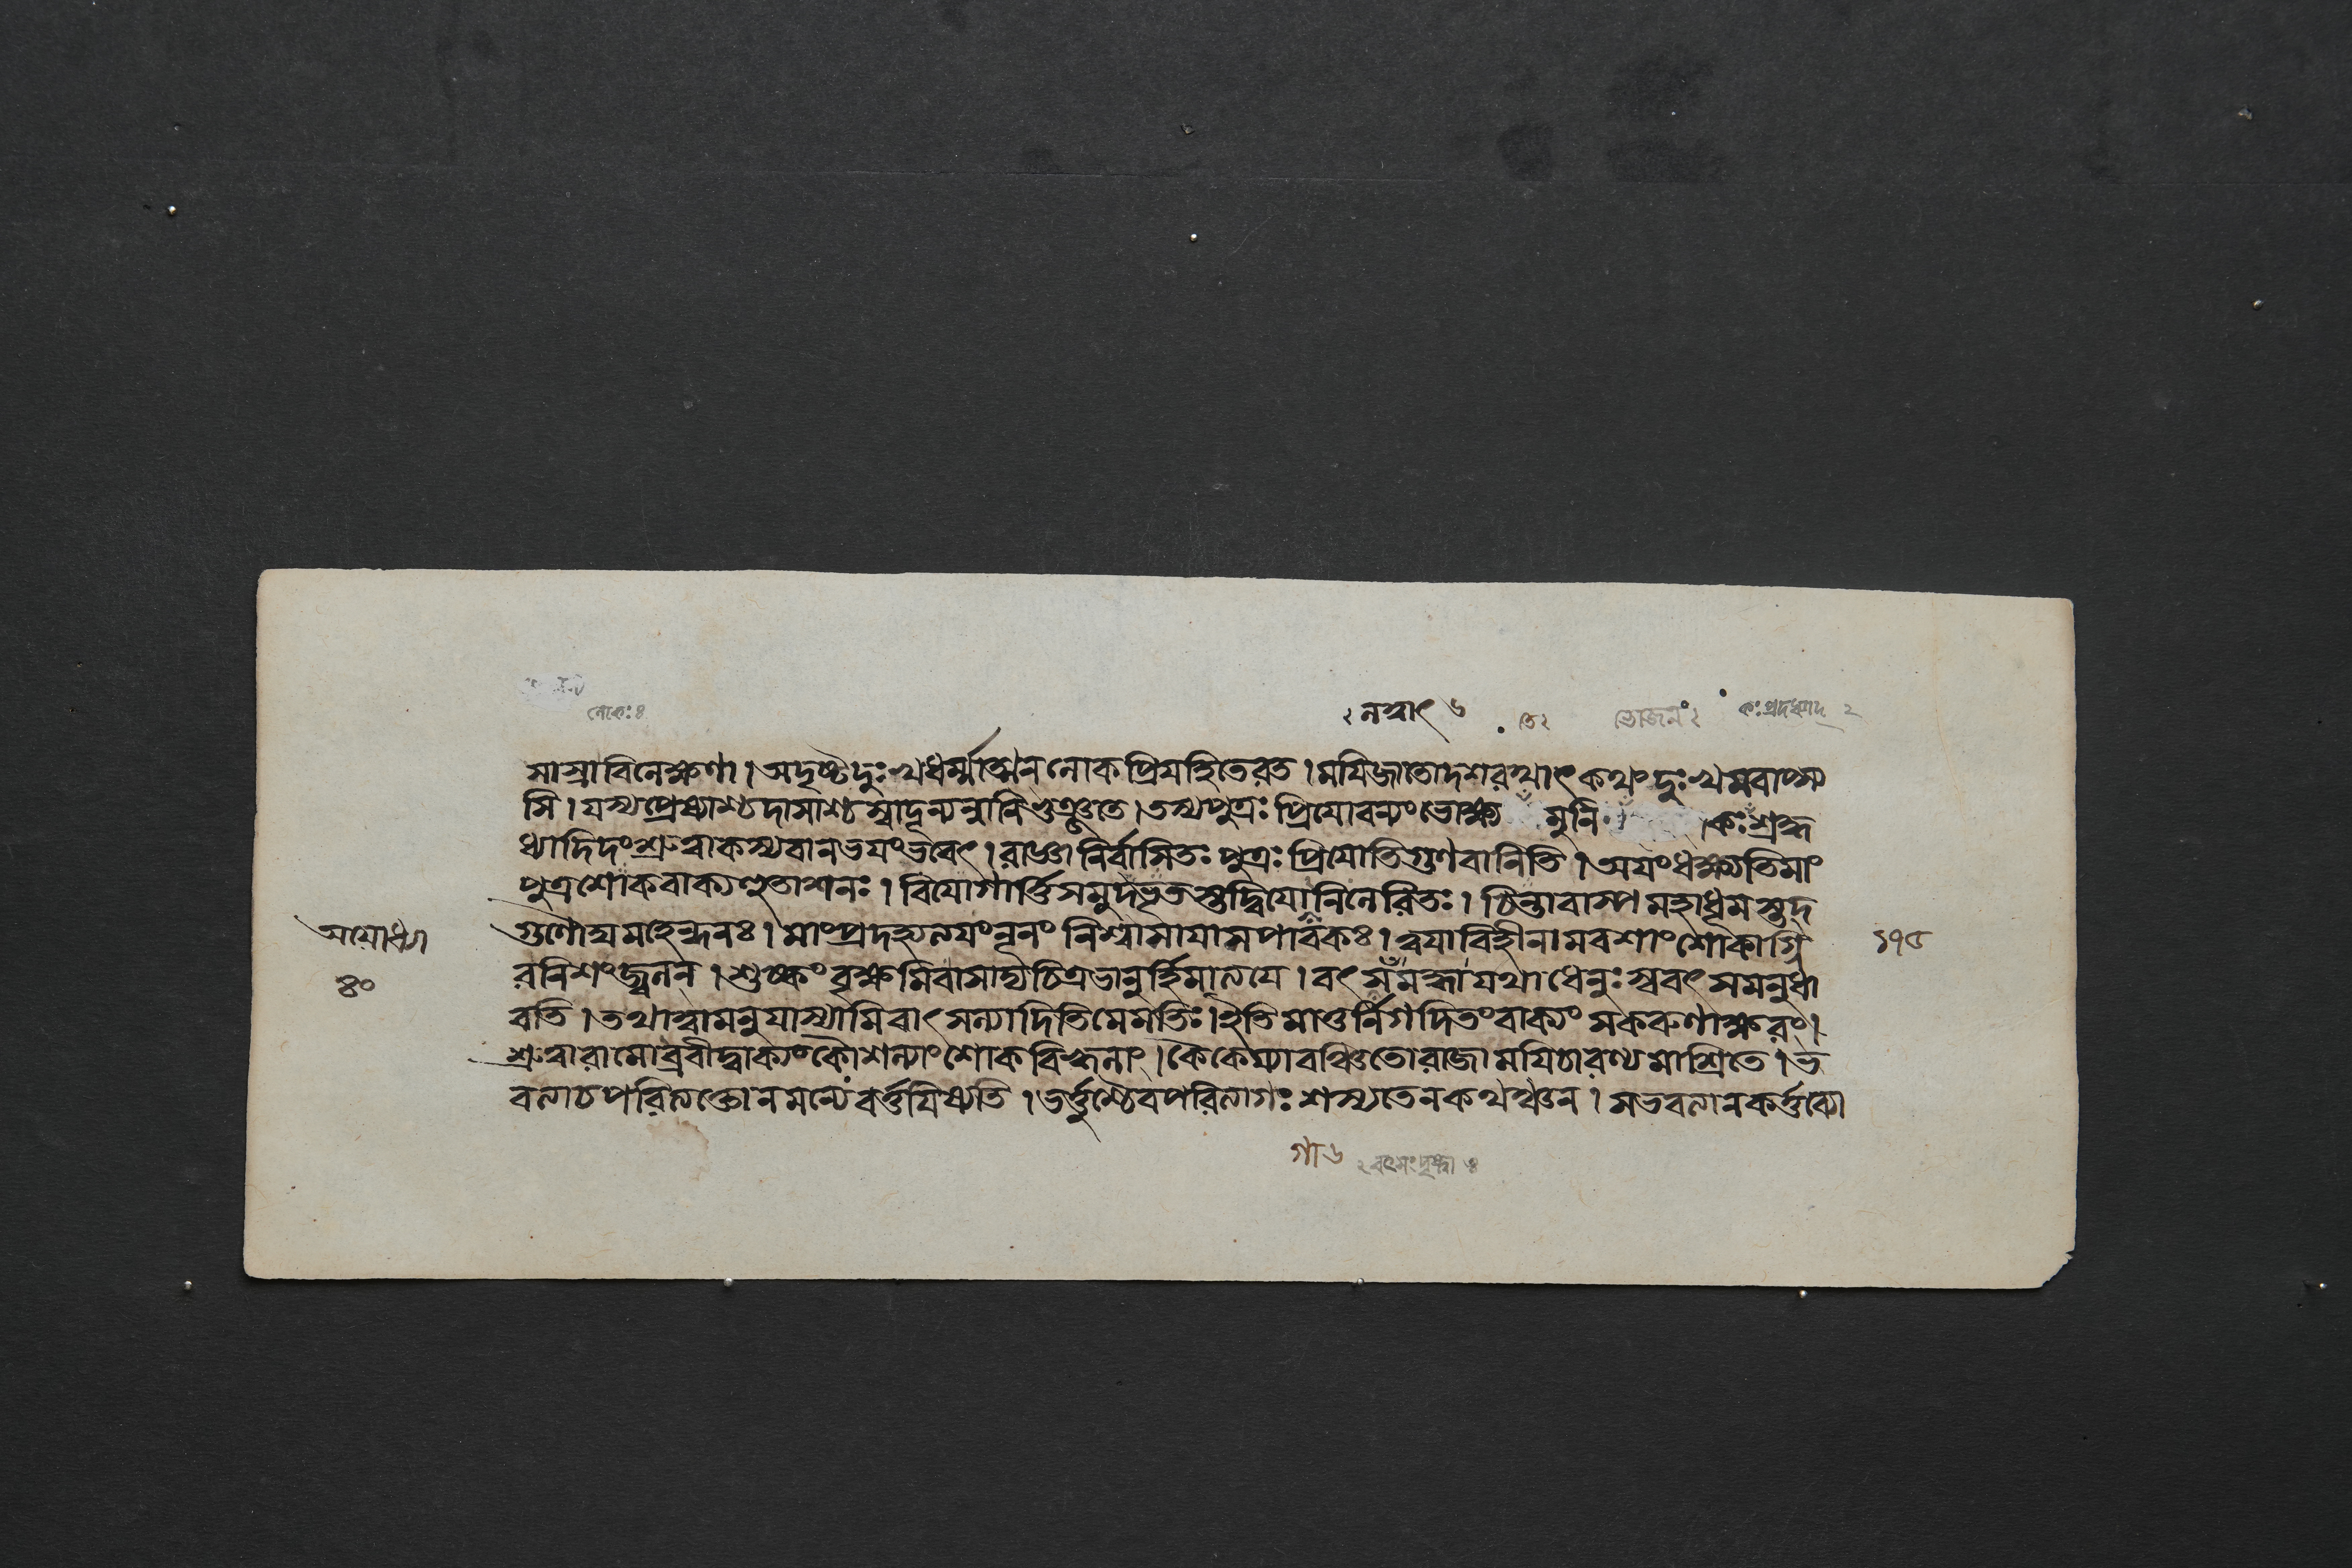 লোকঃ ৪
২ নন্বাৎ ৬
তে ২
ভোজনং ২
কঃ প্রদধ্যাদ্ ২
সাস্রাবিলেক্ষণা । অদৃষ্টদুঃখধর্ম্মাত্মন্নলোকপ্রিয়হিতেরত । ময়িজাতোদশরথাৎকথংদুঃখমবাপ্স্য
সি । যস্যপ্রেষ্যাশ্চদাসাশ্চস্বাদূন্যন্নানিভুঞ্জতে । তস্যপুত্রঃপ্রিয়োবন্যংভোক্ষ্য মুনি । কঃশ্রদ্দ
ধ্যাদিদংশ্রুত্বাকস্যবানভয়ংভবেৎ । রাজ্ঞানির্বাসিতঃপুত্রঃপ্রিয়োতিগুণবানিতি । অয়ংধক্ষ্যতিমাং
পুত্রশোকবাক্যহুতাশনঃ । বিয়োগার্ত্তিসমুদ্ভূতস্তুদ্বিয়োনিলেরিতঃ । চিন্তাবাষ্পমহাধূমস্তুদ
গুণৌঘমহেন্ধনঃ । মাংপ্রদহ্যত্যয়ংনূনং নিশ্বাসায়াসপাবকঃ । ত্বয়াবিহীনামবশাং শোকাগ্নি
রনিশংজ্বলন্ । শুষ্কংবৃক্ষমিবাসাদ্যচিত্রভানুর্হিমাত্যয়ে । বৎসমৃদ্ধাযথাধেনুঃস্ববৎসমনুধা
বতি । তথাত্বামনুযাস্যামিবাৎসল্যাদিতিমেমতিঃ । ইতিমাতুর্নিগদিতংবাক্যং সকরুণাক্ষরং ।
শ্রুত্বারামোব্রবীদ্বাক্যংকৌশল্যাং শোকবিহ্বলাং । কৈকেয্যাবঞ্চিতোরাজাময়িচারণ্যমাশ্রিতে । ভ
বত্যাচপরিত্যক্তোনমন্যেবর্ত্তয়িষ্যতি । ভর্ত্তুশ্চৈবপরিত্যাগঃশস্যতেনকথঞ্চন । সভবত্যানকর্ত্তব্যো
অযোধ্যা
৪০
১৭৫
গা ৬
২ বৎসংদৃষ্ট্বা ৪